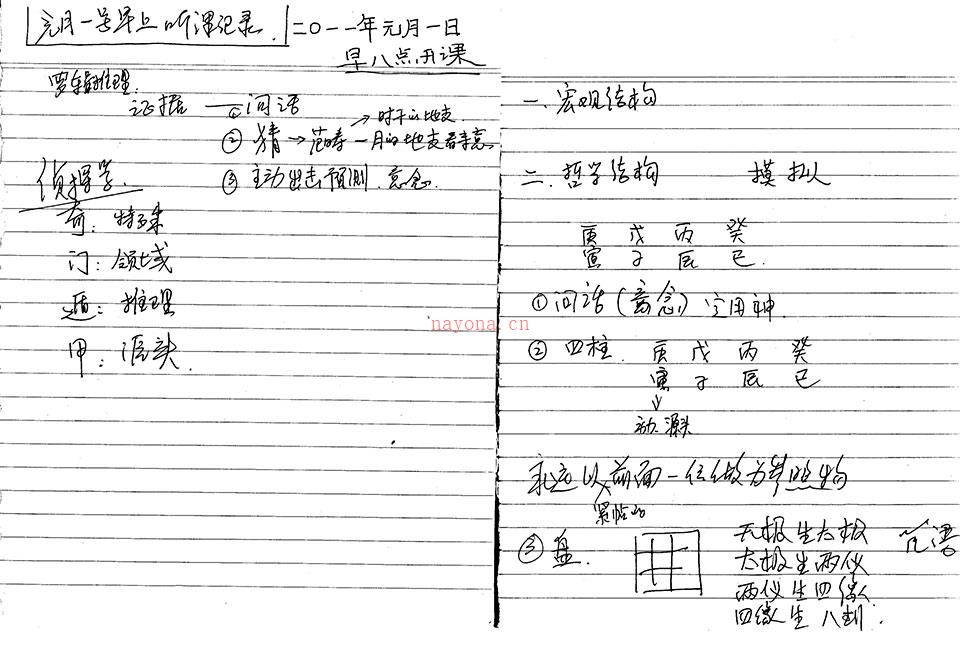 元月一号早上听课记录. 二〇一一年元月一日
早八点开课
逻辑推理.
证据 ① 问话
→ 时干的地支
② 猜 → 范畴 一月的地支看事意
③ 主动出击预测. 意念.
侦探学.
奇: 特殊
门: 领域
遁: 推理
甲: 源头.
一. 宏观结构
二. 哲学结构 模拟
庚 戊 丙 癸
寅 子 辰 巳.
① 问话(意念)定用神.
② 四柱. 庚 戊 丙 癸
寅 子 辰 巳
↓
动源头
永远以前面一位做为参照物
③ 盘.
无极生太极
太极生两仪
两仪生四像
四像生八卦.
nayona.cn